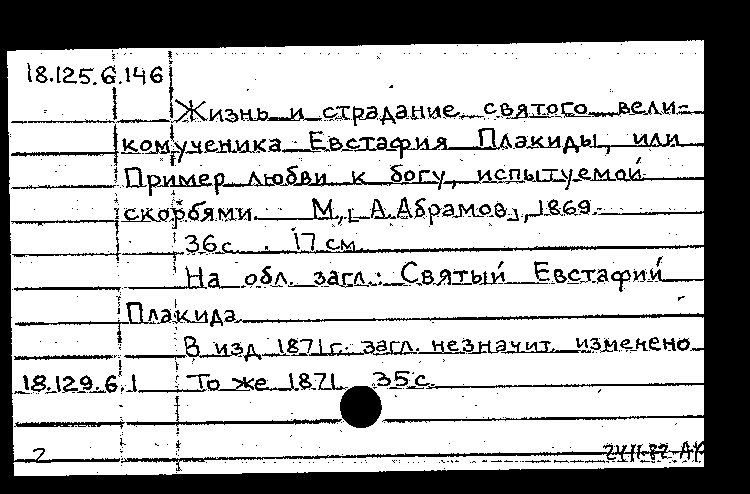 18.125.6.146
Жизнь и страдание святого вели-
комученика Евстафия Плакиды, или
Пример любви к богу, испытуемой
скорбями. М., [А. Абрамов], 1869.
36 с. 17 см.
На обл. загл.: Святый Евстафий
Плакида
В изд. 1871 г. загл. незначит. изменено
18.129.6.1 То же 1871. 35 с.
2